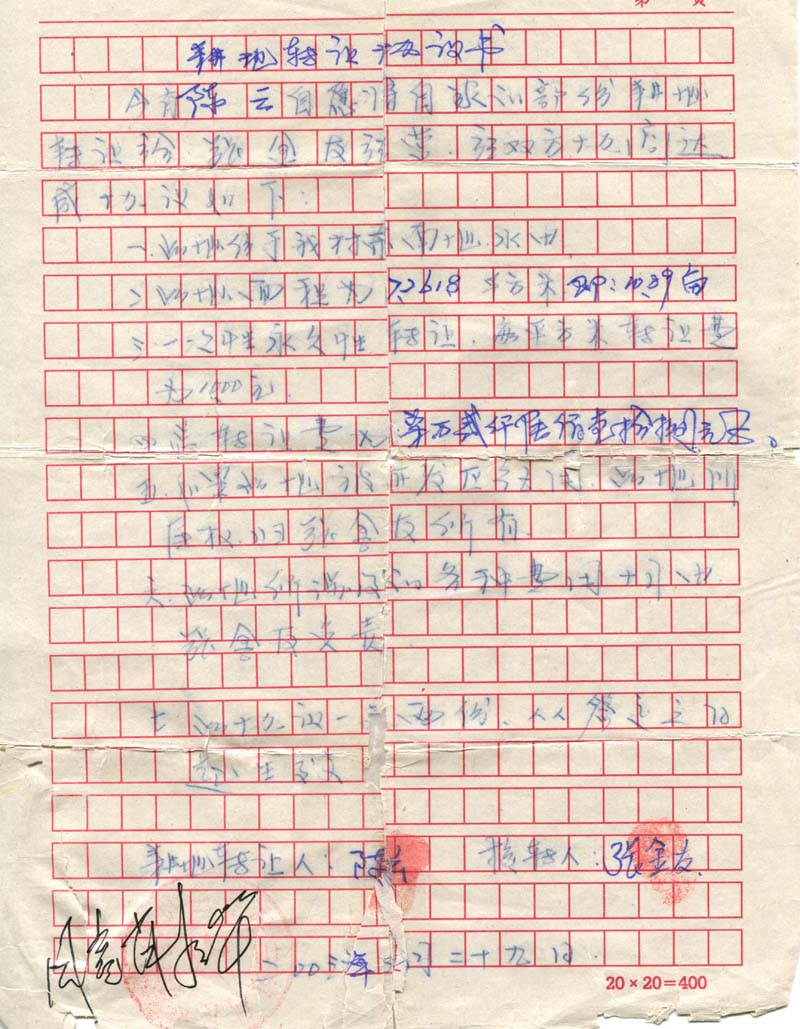 第 页
耕地转让协议书
今有陈云自愿将自家的部份耕地
转让给张金友经营.经双方协商达
成协议如下:
一.此地位于我村 地.水田
二.此地面积为726.18平方米 即:1.089亩
三.一次性永久性转让.每平方米转让费
为 元
四.总转让费为
五.如果此地被开发区征用.此地
权归张金友所有.
六.此地所涉及的各种费用均由
张金友负责
七.此协议一式两份.从签定之日
起生效
耕地转让人:陈云 接转人:张金友.
二00三年 月二十九日
20×20=400